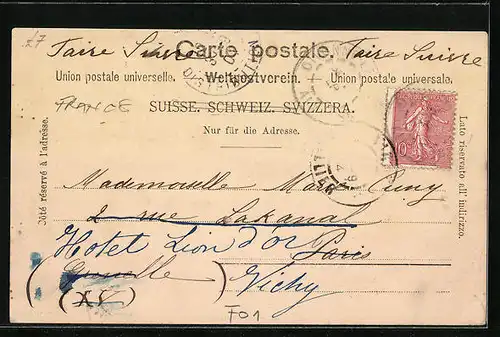 L7
Faire Suivre Carte postale. Faire Suivre
Union postale universelle. — Weltpostverein. — Union postale universale.
FRANCE
SUISSE. SCHWEIZ. SVIZZERA.
Nur für die Adresse.
Côté réservé à l'adresse.
Lato riservato all' indirizzo.
10
Mademoiselle
2 rue Lakanal
Hotel Lion d'or Paris
(Grenelle) Vichy
(XV)
F01